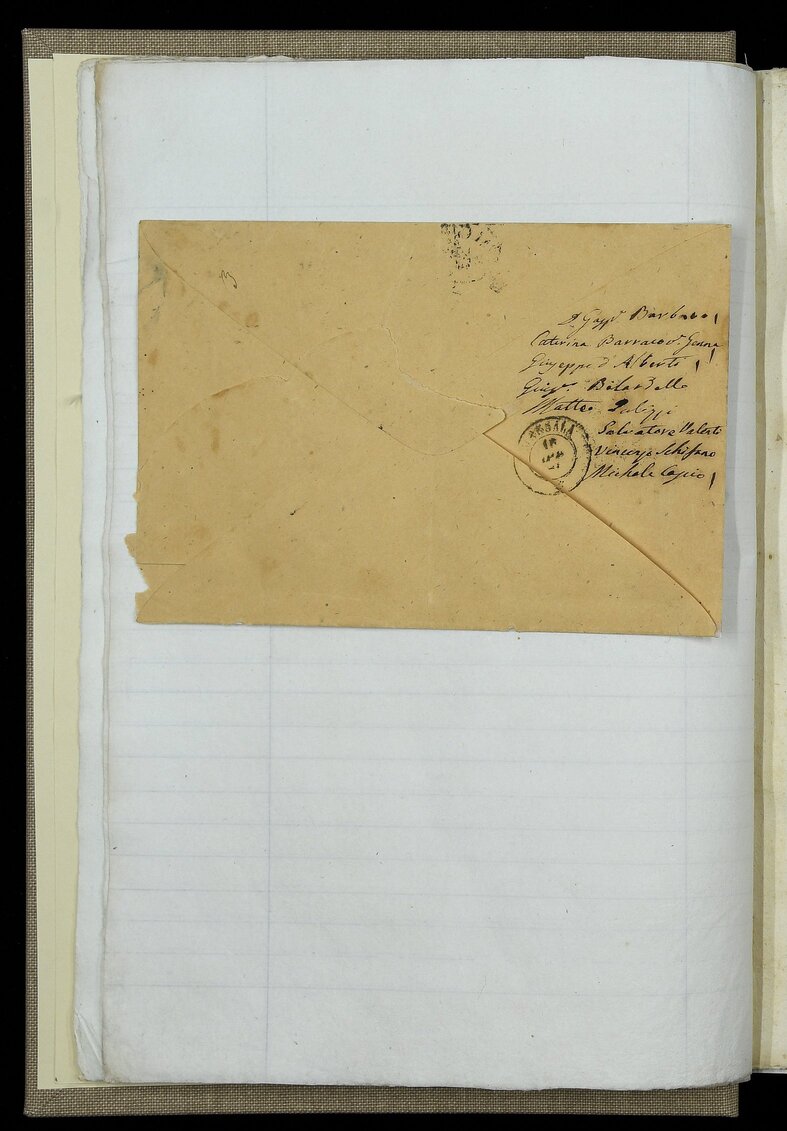 3
D. Gasp.e Barbaro
Caterina Barraco d. Genna
Giuseppe d'Alberti
Gius.e Bilardello
Matteo
MARSALA
18
Salvatore Valenti
Vincenzo Schifano
Michele Capio